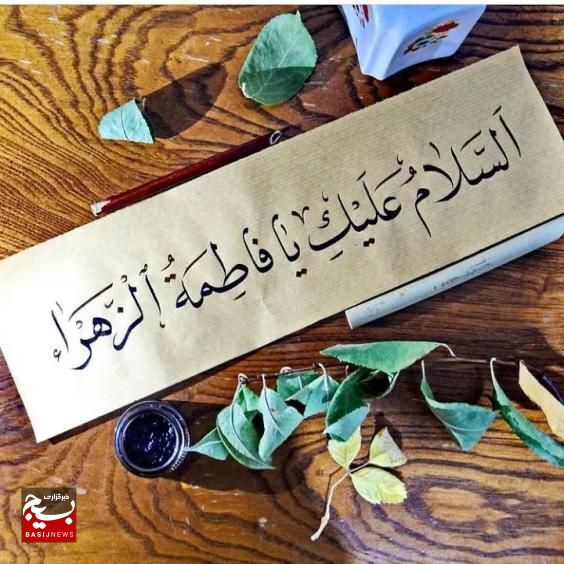 اَلسَّلامُ عَلَيْكِ يا فاطِمَةُ ٱلزَّهْراء
خبرگزاری
بسیج
BASIJNEWS